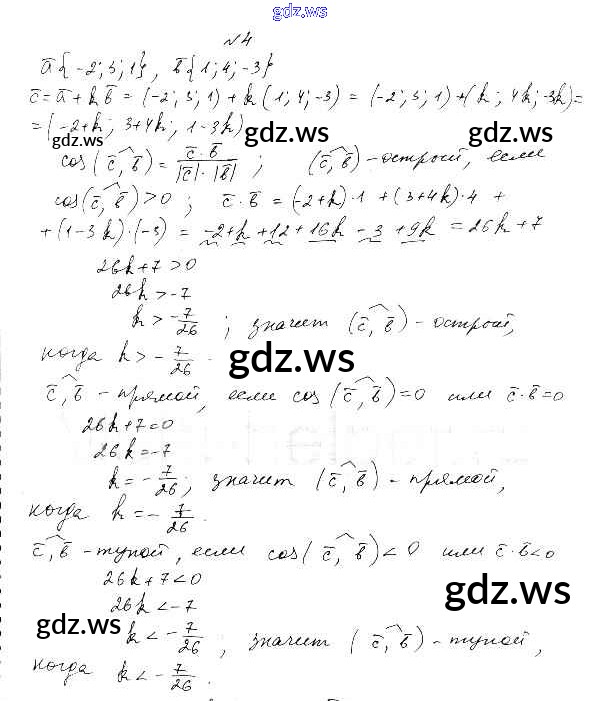 gdz.ws
№4
a̅{-2; 3; 1}, b̅{1; 4; -3}
c̅ = a̅ + k b̅ = (-2; 3; 1) + k (1; 4; -3) = (-2; 3; 1) + (k; 4k; -3k) =
= (-2+k; 3+4k; 1-3k)
gdz.ws gdz.ws gdz.ws
cos(c̅, b̅) = c̅·b̅ / |c̅|·|b̅| ; (c̅, b̅) - острый, если
cos(c̅, b̅) > 0 ; c̅·b̅ = (-2+k)·1 + (3+4k)·4 +
+ (1-3k)·(-3) = -2+k+12+16k-3+9k = 26k+7
26k+7>0
26k>-7
k > -7/26 ; значит (c̅, b̅) - острый,
когда k > -7/26.
gdz.ws
c̅, b̅ - прямой, если cos(c̅, b̅)=0 или c̅·b̅=0
26k+7=0
26k=-7
k = -7/26; значит (c̅, b̅) - прямой,
когда k = -7/26.
c̅, b̅ - тупой, если cos(c̅, b̅)<0 или c̅·b̅<0
26k+7<0
gdz.ws
26k<-7
gdz.ws
k < -7/26, значит (c̅, b̅) - тупой,
когда k < -7/26.
gdz.ws